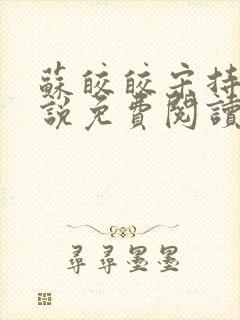 蘇皎皎宋持
說免費閱讀
尋尋墨墨